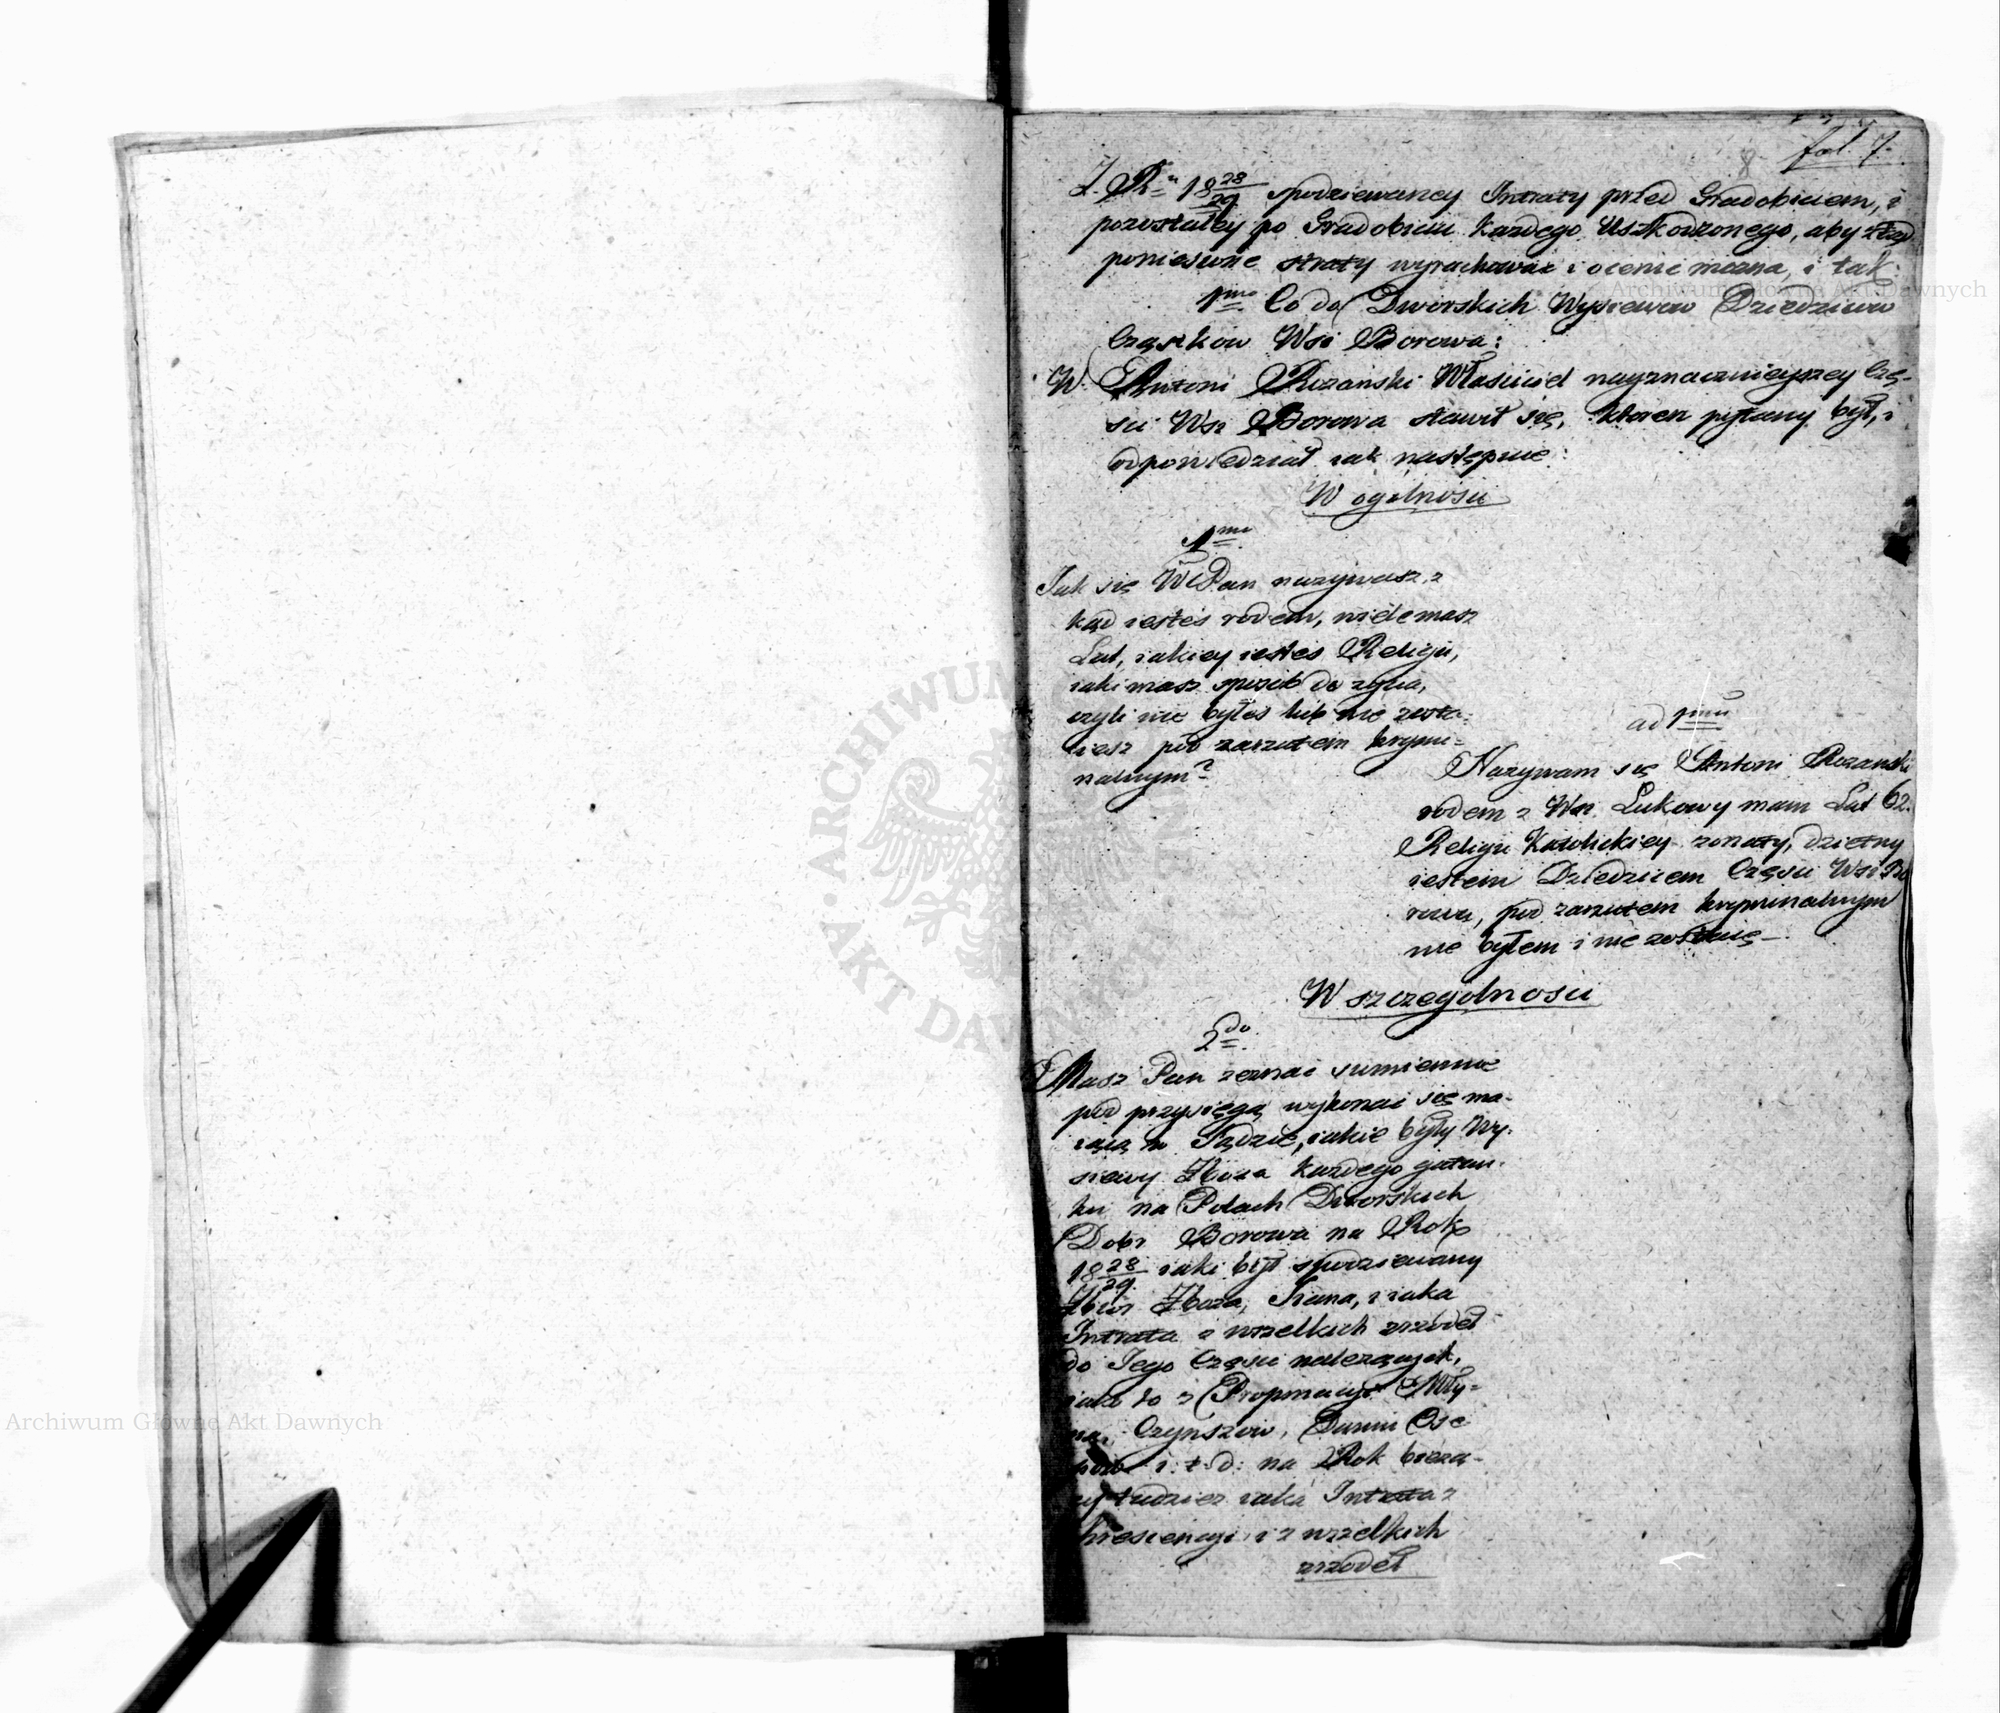 fol. 7.
8
Z R<sup>u</sup> 18 28/29 spodziewaney Intraty przed Gradobiciem, i
pozostałey po Gradobiciu każdego Uszkodzonego, aby ztąd
poniesione straty wyrachować i ocenić można, i tak:
1<sup>mo</sup> Co do Dworskich Wysiewow Dziedziców
Cząstkow Wsi Borowa:
W. Antoni Rozański Właściciel nayznacznieyszey Czę-
ści Wsi Borowa stawił się, ktoren pytany był, i
odpowiedział iak następuie:
W ogolności
1<sup>mo</sup>
Jak się WPan nazywasz, z
kąd iesteś rodem, wiele masz
Lat, iakiey iesteś Religii,
iaki masz sposób do życia,
czyli nie byłeś lub nie zosta-
iesz pod zarzutem krymi-
nalnym?
ad 1<sup>mum</sup>
Nazywam się Antoni Rozański
rodem z Wsi Łukowy mam Lat 62.
Religii Katolickiey żonaty, dzietny
iestem Dziedzicem Części Wsi Bo
rowa, pod zarzutem kryminalnym
nie byłem i nie zostaię —
W szczegolności
2<sup>do</sup>
Masz Pan zeznać sumiennie
pod przysięgą wykonać się ma-
iącą w Sądzie, iakie były Wy-
siewy Zboża każdego gatun-
ku na Polach Dworskich
Dobr Borowa na Rok
18 28/29 iaki był spodziewany
Zbiór Zboża, Siana, i iaka
Intrata z wszelkich zrzodeł
do Jego Części należących,
iako to z Propinacyi Mły-
na, Czynszów, Danin Ose
pów i. t. d: na Rok bieżą-
cy tudzież iaka Intrata z
kresiencyi i z wszelkich
zrzodeł
Archiwum Główne Akt Dawnych
Archiwum Główne Akt Dawnych
ARCHIWUM
AKT DAWNYCH